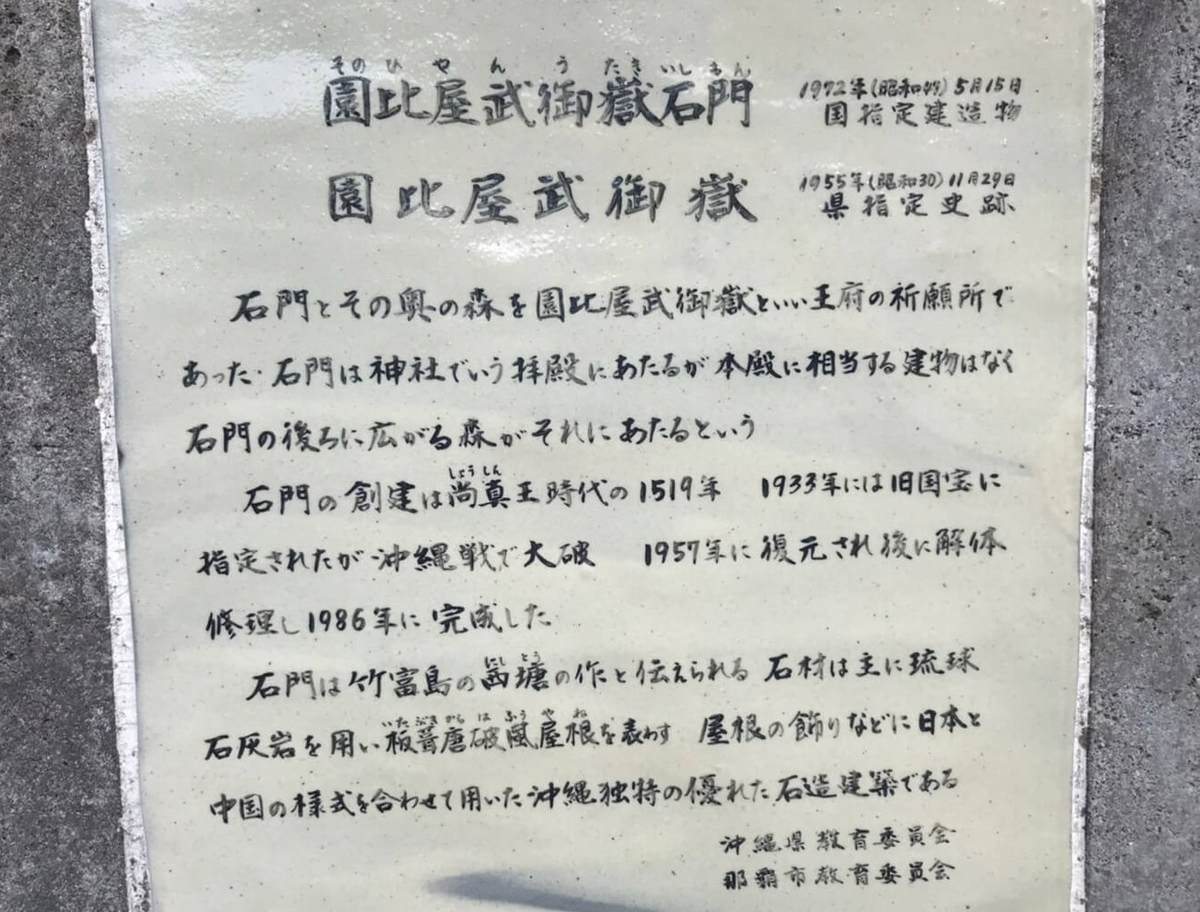 そのひやんうたきいしもん
園比屋武御嶽石門
1972年(昭和47)5月15日
国指定建造物
園比屋武御嶽
1955年(昭和30)11月29日
県指定史跡
石門とその奥の森を園比屋武御嶽といい王府の祈願所で
あった．石門は神社でいう拝殿にあたるが本殿に相当する建物はなく
石門の後ろに広がる森がそれにあたるという
しょうしん
石門の創建は尚真王時代の1519年　1933年には旧国宝に
指定されたが沖縄戦で大破　1957年に復元され後に解体
修理し1986年に完成した
にしとう
石門は竹富島の西塘の作と伝えられる 石材は主に琉球
いたぶきからはふうやね
石灰岩を用い板葺唐破風屋根を表わす 屋根の飾りなどに日本と
中国の様式を合わせて用いた沖縄独特の優れた石造建築である
沖縄県教育委員会
那覇市教育委員会